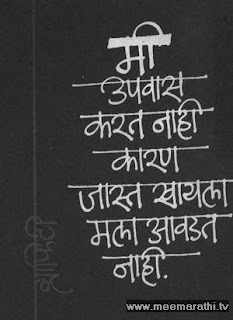 मी
उपवास
करत नाही
कारण
जास्त खायला
मला आवडत
नाही.
ग्राफिटी
www.meemarathi.tv